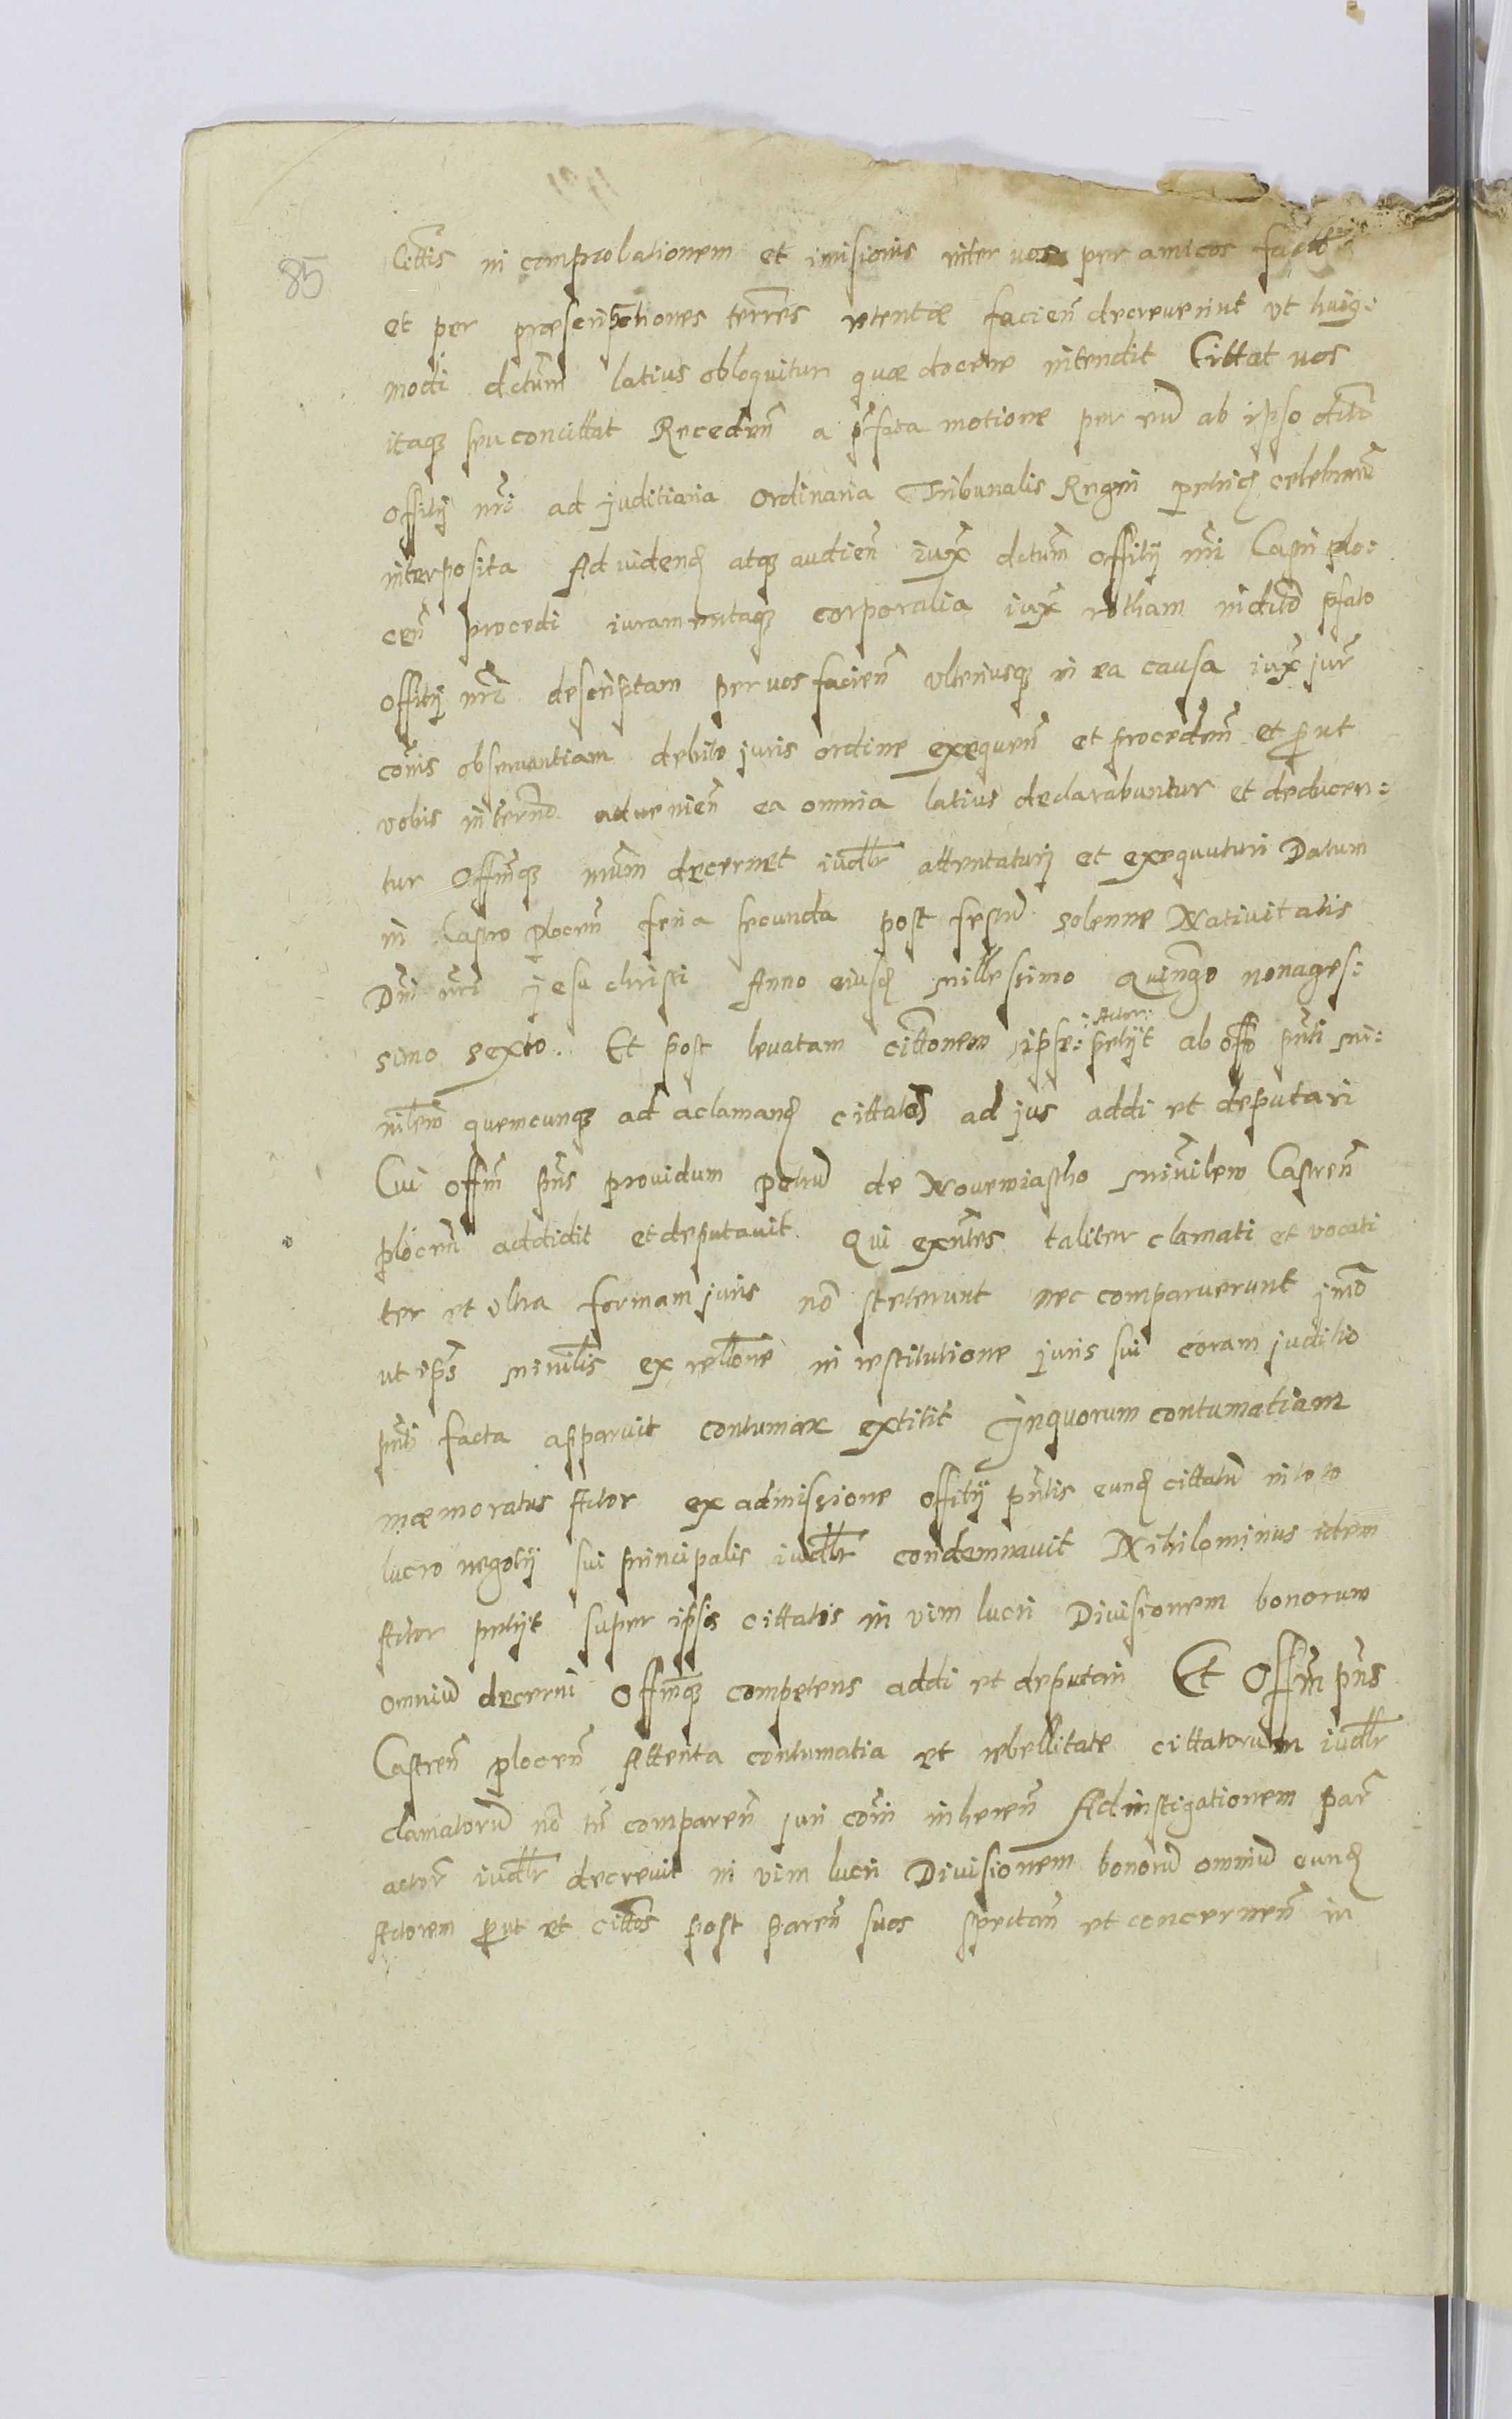 85
Citt̃is in comprobationem et imisionis inter vos per amicos fact̃
et per præscriptiones terr̃es retentæ facien̄ decreverint ut huiq:
modi dctum̃ latius obloquitur quæ docere intendit Cittat vos
itaq3 seu concittat Receden̄ a p̃fata motione per eũ ab ipso ctito
offitij nr̃i ad juditiaria ordinaria Tribunalis Regni petric̃ celebran̄
interposita Ad videnđ atq3 audien̄ iux̃ dctum̃ offitij nr̃i Castri plo:
cen̄ procedi iuramentaq3 corporalia iux̃ rotham in ctito p̃fato
offitij nr̃i descriptam per vos facien̄ ulteriusq3 in ea causa iux̃ jur̃
cõis observantiam debito juris ordine exequen̄ et proceden̄ et ꝓut
vobis in termõ advenien̄ ea omnia latius declarabuntur et deducen:
tur Offm̃q3 nrũm decernet iudl̃r attentaturi et exequuturi Datum
in Castro plocen̄ feria secunda post festũ solenne Nativitatis
Dñi nr̃i Jesu christi Anno eiusđ millessimo Quingõ nonages:
simo sexto. Et post levatam cittõnem ipse :Actor: petijt ab offo pñti mi:
nilem̃ quemcunq3 ad aclamanđ cittatos ad jus addi et deputari
Cui offm̃ pñs providum petrũ de Novemiastho minr̃ilem Castren̄
plocen̄ addidit et deputavit. Qui exñtes taliter clamati et vocati
ter et ultra formam juris nõ steterunt nec comparuerunt imõ
ut ips̃ minrilis ex rel̃lone in restitutione juris sui coram juditio
pñti facta apparuit contumax extitit In quorum contumatiam
mæmoratus Actor ex admissione offitij pñtis eunđ cittatũ in toto
lucro negotij sui principalis iudl̃r condemnavit Nihilominus idem
Actor petijt super ipsis cittatis in vim lucri Divisionem bonorum
omniũ decerni Offm̃q3 competens addi et deputari Et Offm̃ pñs
Castren̄ plocen̄ Attenta contumatia et rebellitate cittatorum iudl̃r
clamatorũ nõ tñ comparen̄ juri cõi inheren̄ Ad instigationem par̃
actor̃ iudl̃r decrevit in vim lucri Divisionem bonorũ omniũ eunđ
Actorem ꝓut et citt̃os post paren̄ suos spectan̄ et concernen̄ in